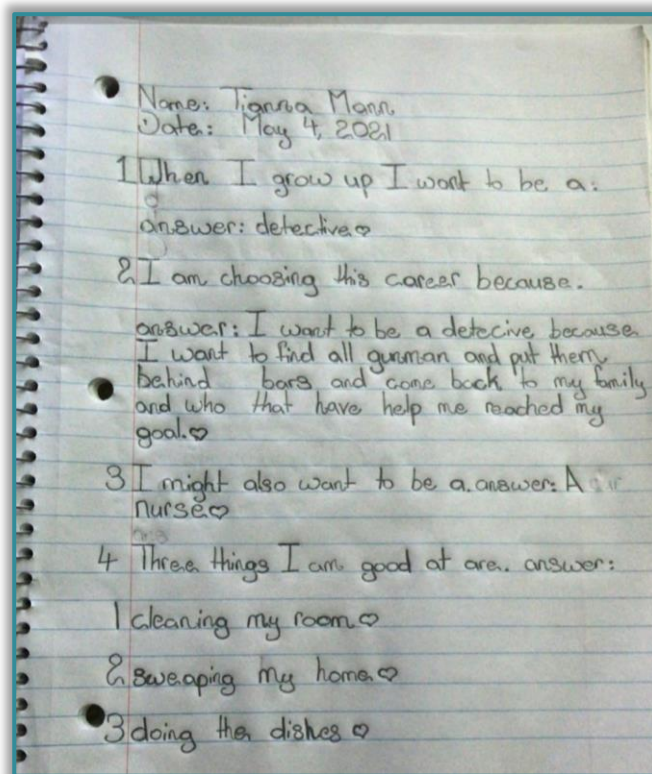 Name: Tianna Mann
Date: May 4, 2021
1 When I grow up I want to be a:
answer: detective♡
2 I am choosing this career because.
answer: I want to be a detecive because
I want to find all gunman and put them
behind bars and come back to my family
and who that have help me reached my
goal.♡
3 I might also want to be a. answer: A
nurse♡
4 Three things I am good at are. answer:
1 cleaning my room♡
2 sweaping my home♡
3 doing the dishes♡